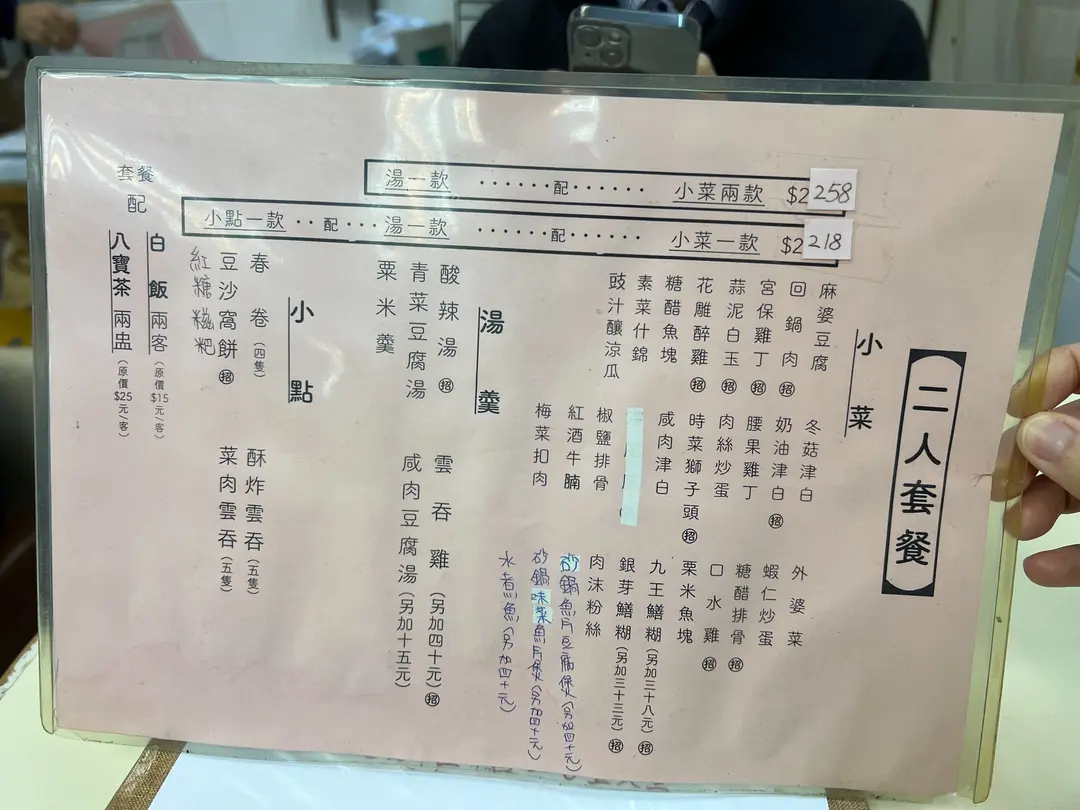 二人套餐
湯一款 ······配······ 小菜兩款 $2 258
小點一款 ··配···湯一款 ·······配······· 小菜一款 $2 218
小菜
麻婆豆腐
回鍋肉 招
宮保雞丁 招
蒜泥白玉 招
花雕醉雞 招
糖醋魚塊
素菜什錦
豉汁釀涼瓜
冬菇津白
奶油津白 招
腰果雞丁
肉絲炒蛋
時菜獅子頭 招
咸肉津白
椒鹽排骨
紅酒牛腩
梅菜扣肉
外婆菜
蝦仁炒蛋
糖醋排骨 招
口水雞 招
粟米魚塊
九王鱔糊(另加三十八元) 招
銀芽鱔糊(另加三十三元) 招
肉沫粉絲
砂鍋魚片豆腐煲(另加四十元)
砂鍋味菜魚片煲(另加四十元)
水煮魚(另加四十元)
湯羹
酸辣湯 招
青菜豆腐湯
粟米羹
雲吞雞(另加四十元) 招
咸肉豆腐湯(另加十五元)
小點
春卷(四隻)
豆沙窩餅 招
紅糖糍粑
酥炸雲吞(五隻)
菜肉雲吞(五隻)
套餐
配
白飯兩客(原價$15元/客)
八寶茶兩盅(原價$25元/客)